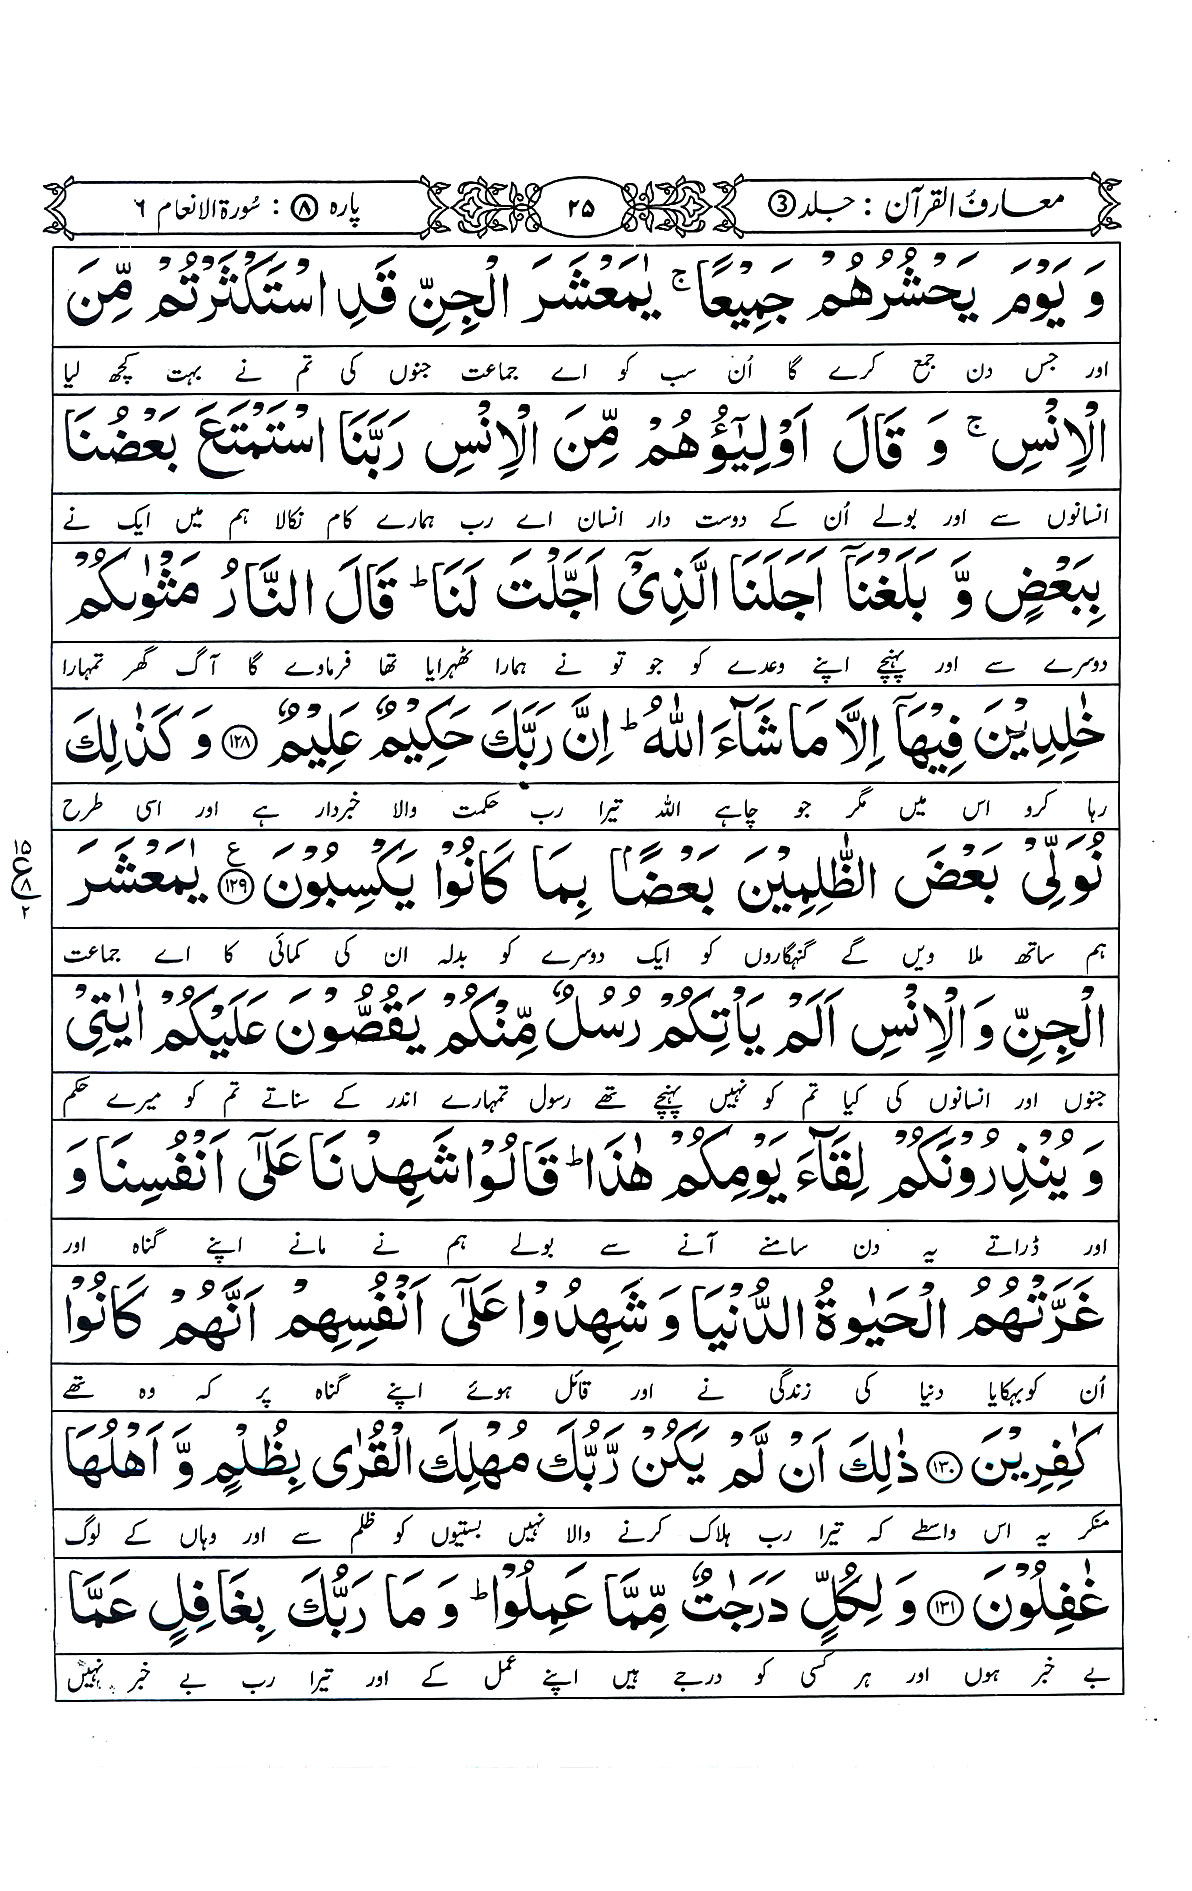 معارف القرآن : جلد ③
۲۵
پارہ ⑧ : سُورۃ الانعام ۶
وَ يَوْمَ يَحْشُرُهُمْ جَمِيْعًا ۚ يٰمَعْشَرَ الْجِنِّ قَدِ اسْتَكْثَرْتُمْ مِّنَ
اور جس دن جمع کرے گا اُن سب کو اے جماعت جنوں کی تم نے بہت کچھ لیا
الْاِنْسِ ۚ وَ قَالَ اَوْلِيٰٓؤُهُمْ مِّنَ الْاِنْسِ رَبَّنَا اسْتَمْتَعَ بَعْضُنَا
انسانوں سے اور بولے اُن کے دوست دار انسان اے رب ہمارے کام نکالا ہم میں ایک نے
بِبَعْضٍ وَّ بَلَغْنَآ اَجَلَنَا الَّذِيْٓ اَجَّلْتَ لَنَا ؕ قَالَ النَّارُ مَثْوٰىكُمْ
دوسرے سے اور پہنچے اپنے وعدے کو جو تو نے ہمارا ٹھہرایا تھا فرماوے گا آگ گھر تمہارا
خٰلِدِيْنَ فِيْهَآ اِلَّا مَا شَآءَ اللّٰهُ ؕ اِنَّ رَبَّكَ حَكِيْمٌ عَلِيْمٌ ﴿۱۲۸﴾ وَ كَذٰلِكَ
رہا کرو اس میں مگر جو چاہے اللہ تیرا رب حکمت والا خبردار ہے اور اسی طرح
نُوَلِّيْ بَعْضَ الظّٰلِمِيْنَ بَعْضًاۢ بِمَا كَانُوْا يَكْسِبُوْنَ ﴿۱۲۹﴾ ع يٰمَعْشَرَ
۱۵
ع ۸
۲
ہم ساتھ ملا دیں گے گنہگاروں کو ایک دوسرے کو بدلہ ان کی کمائی کا اے جماعت
الْجِنِّ وَ الْاِنْسِ اَلَمْ يَاْتِكُمْ رُسُلٌ مِّنْكُمْ يَقُصُّوْنَ عَلَيْكُمْ اٰيٰتِيْ
جنوں اور انسانوں کی کیا تم کو نہیں پہنچے تھے رسول تمہارے اندر کے سناتے تم کو میرے حکم
وَ يُنْذِرُوْنَكُمْ لِقَآءَ يَوْمِكُمْ هٰذَا ؕ قَالُوْا شَهِدْنَا عَلٰٓى اَنْفُسِنَا وَ
اور ڈراتے یہ دن سامنے آنے سے بولے ہم نے مانے اپنے گناہ اور
غَرَّتْهُمُ الْحَيٰوةُ الدُّنْيَا وَ شَهِدُوْا عَلٰٓى اَنْفُسِهِمْ اَنَّهُمْ كَانُوْا
اُن کو بہکایا دنیا کی زندگی نے اور قائل ہوئے اپنے گناہ پر کہ وہ تھے
كٰفِرِيْنَ ﴿۱۳۰﴾ ذٰلِكَ اَنْ لَّمْ يَكُنْ رَّبُّكَ مُهْلِكَ الْقُرٰى بِظُلْمٍ وَّ اَهْلُهَا
منکر یہ اس واسطے کہ تیرا رب ہلاک کرنے والا نہیں بستیوں کو ظلم سے اور وہاں کے لوگ
غٰفِلُوْنَ ﴿۱۳۱﴾ وَ لِكُلٍّ دَرَجٰتٌ مِّمَّا عَمِلُوْا ؕ وَ مَا رَبُّكَ بِغَافِلٍ عَمَّا
بے خبر ہوں اور ہر کسی کو درجے ہیں اپنے عمل کے اور تیرا رب بے خبر نہیں